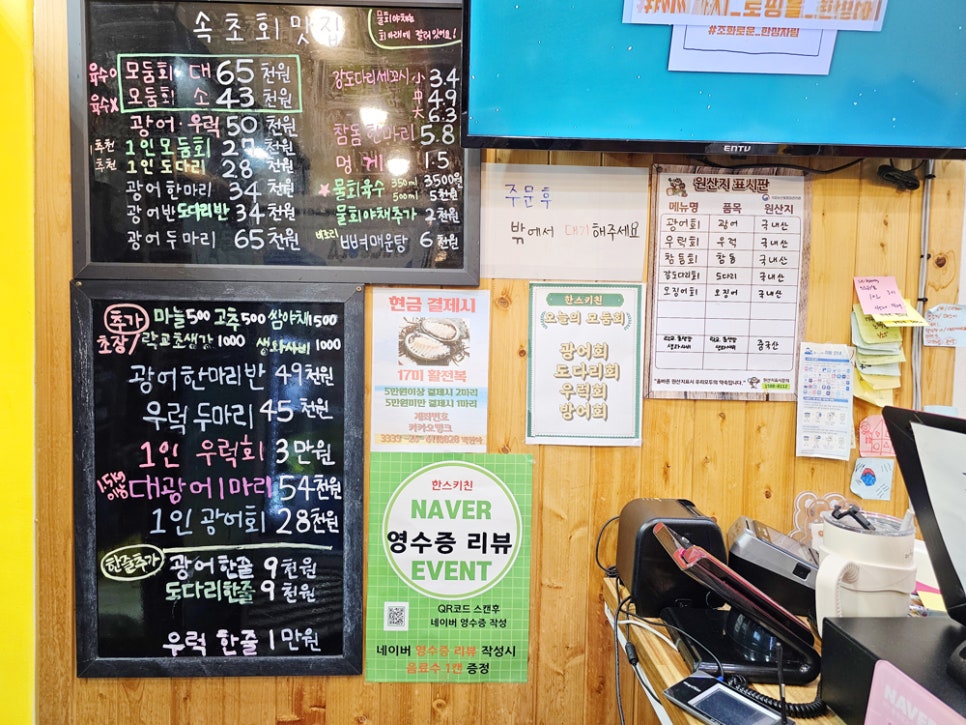 속초회맛집
물회야채는
회 아래에 깔려 있어요!
육수O 모둠회 대 65천원
육수X 모둠회 소 43천원
광어·우럭 50천원
추천 1인모둠회 27천원
추천 1인 도다리 28천원
광어한마리 34천원
광어반도다리반 34천원
광어두마리 65천원
강도다리세꼬시 小 3.4
中 4.9
大 6.3
참돔 한마리 5.8
멍게 1.5
★물회육수 350ml 3500원
500ml 5천원
물회야채추가 2천원
뼈매운탕 6천원
추가 마늘500 고추500 쌈야채1500
초장 락교초생강 1000 생와사비 1000
광어한마리반 49천원
우럭두마리 45천원
1인 우럭회 3만원
1.5kg이상 대광어1마리 54천원
1인광어회 28천원
한줄추가 광어한줄 9천원
도다리한줄 9천원
우럭 한줄 1만원
#조화로운_한상차림
주문후
밖에서 대기해주세요
현금 결제시
17미 활전복
5만원이상 결제시 2마리
5만원미만 결제시 1마리
계좌번호
카카오뱅크
한스키친
오늘의 모둠회
광어회
도다리회
우럭회
방어회
한스키친
NAVER
영수증 리뷰
EVENT
QR코드 스캔후
네이버 영수증 작성
네이버 영수증 리뷰 작성시
음료수 1캔 증정
원산지 표시판
메뉴명 품목 원산지
광어회 광어 국내산
우럭회 우럭 국내산
참돔회 참돔 국내산
강도다리회 도다리 국내산
오징어회 오징어 국내산
중국산
"올바른 원산지표시 우리모두의 약속입니다."
ENTV
NAVER